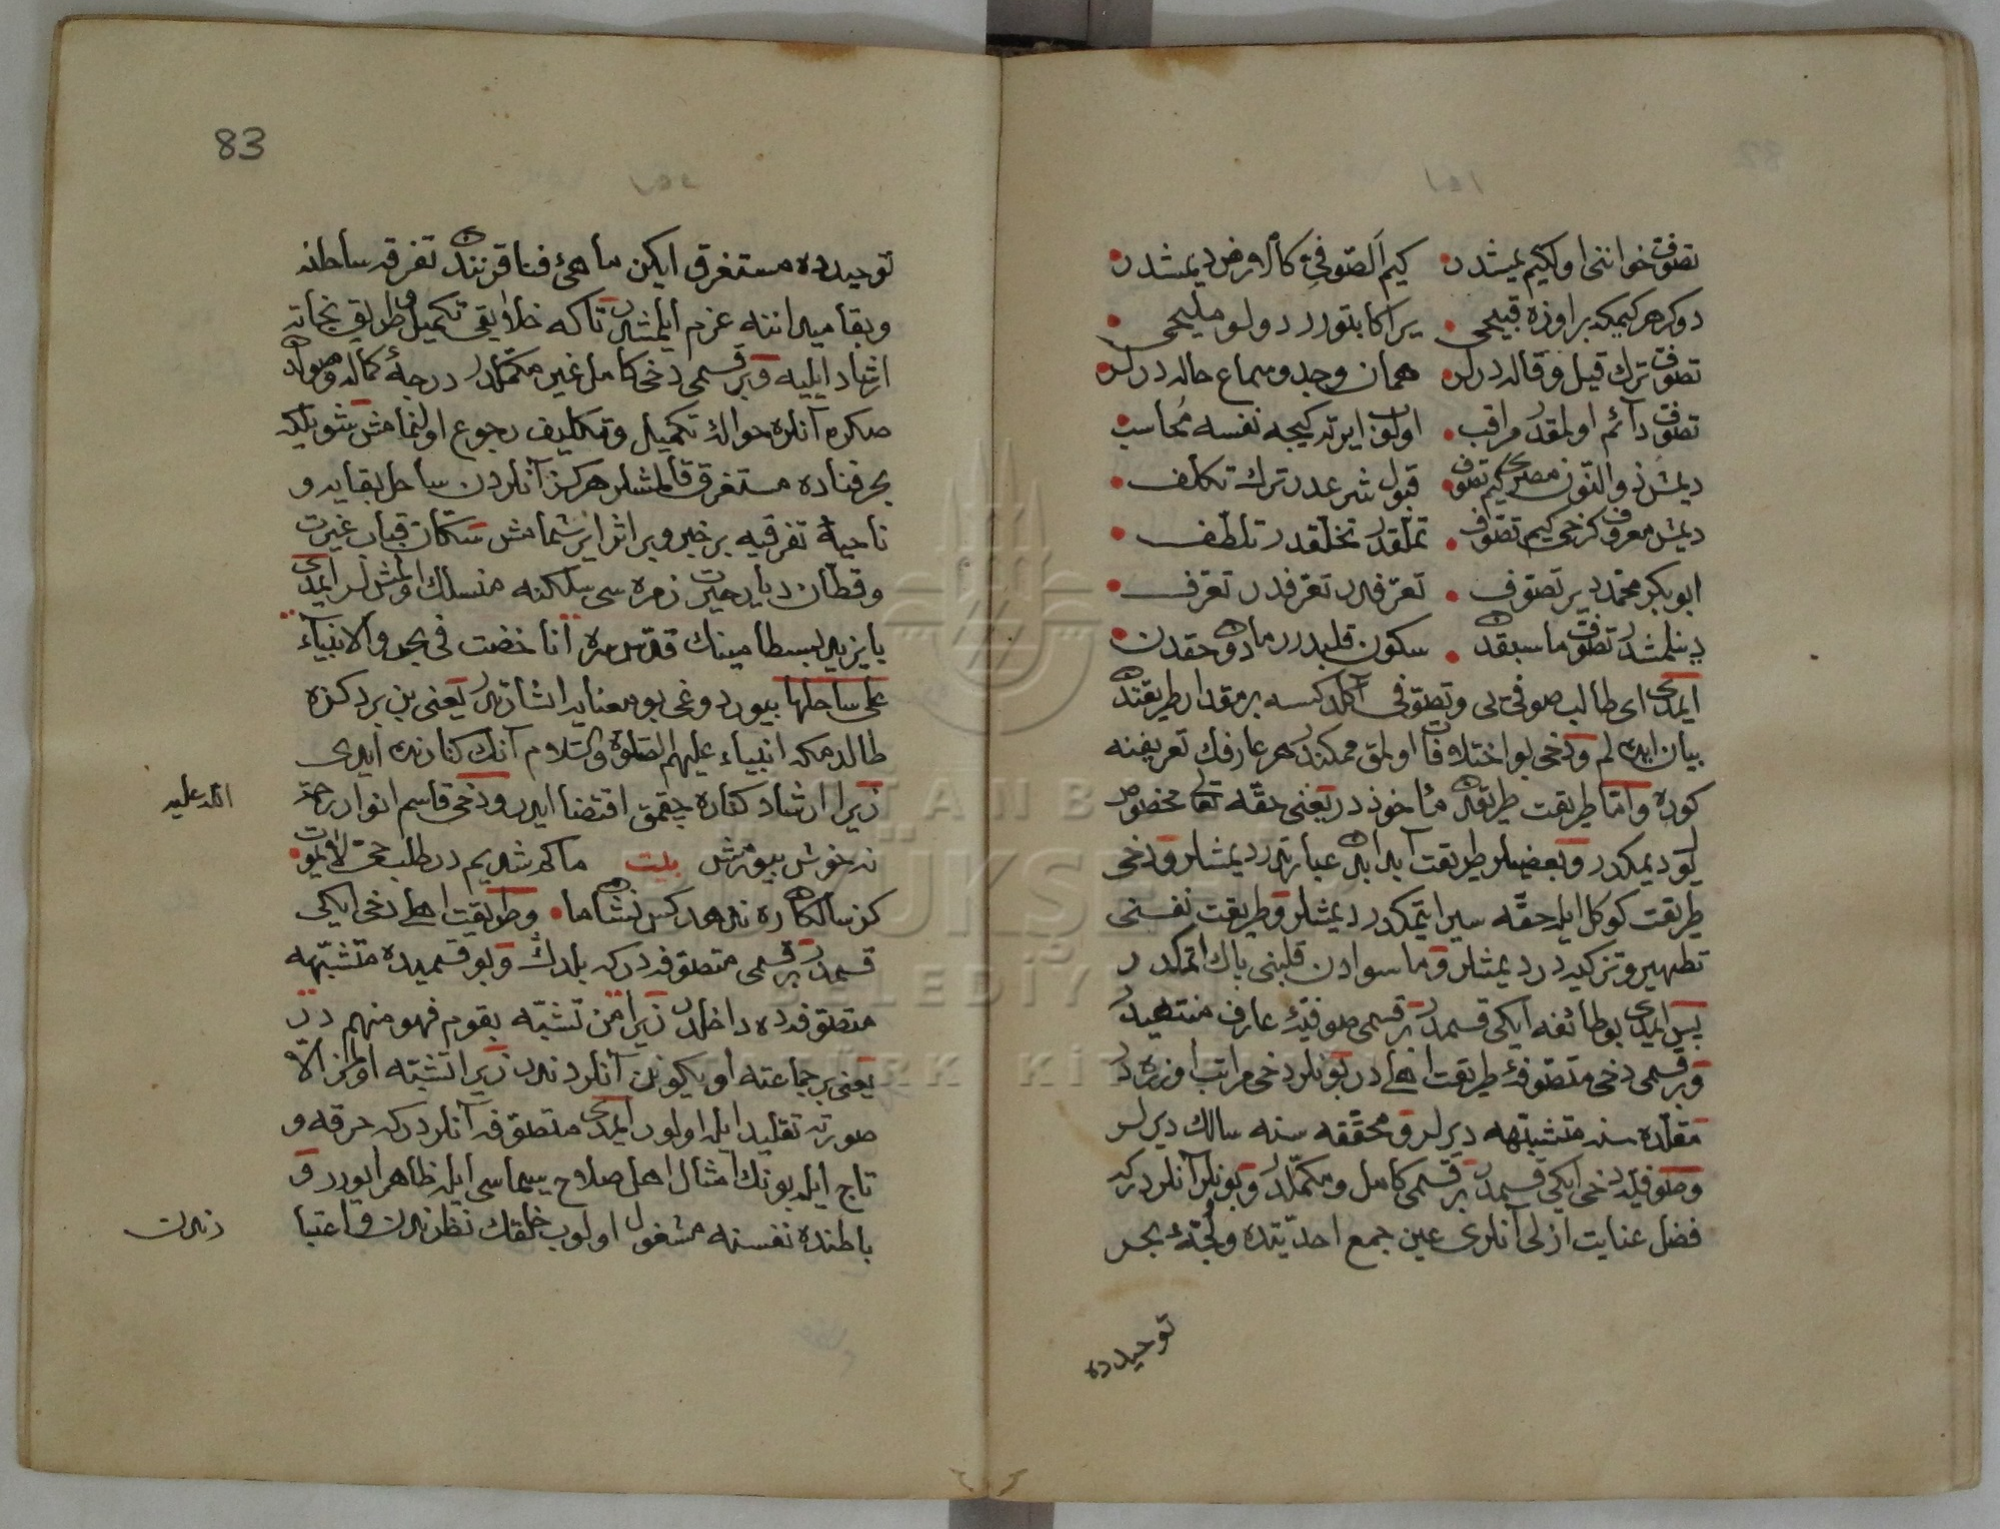 تصوف خواننی اول کیم یمشدر کیم الصوفی کالارض دیمشدر
دوکر هر کیمکه بر اوزه قبیحی یراکا بتورر دولو ملیحی
تصوف ترك قیل وقالد درلر همان وجد وسماع حالد درلر
تصوف دائم اولمقدر مراقب اولوب ایرته کیجه نفسه محاسب
دیمش ذو النون مصری کیم تصوف قبول شرعدر ترك تکلف
دیمش معروف کرخی کیم تصوف تملقدر تخلقدر تلطف
ابو بکر محمد دیر تصوف تعزفدر تعرفدر تعرف
دینلمشدر تصوف ماسبقده سکون قلبدر مادون حقدن
ایمدی ای طالب صوفی یی وتصوفی آکلدکسه بر مقدار طریقتده
بیان ایده لم ودخی بو اختلافات اولمق ممکندر هر عارفك تعریفنه
کوره واما طریقت طریقدن مأخوذدر یعنی حقه تعالی مخصوص
یول دیمکدر وبعضیلر طریقت آبدن عبارتدر دیمشلر ودخی
طریقت کوکل ایله حقه سیر ایتمکدر دیمشلر وطریقت نفسنی
تطهیر وتزکیه در دیمشلر وماسوادن قلبنی پاك اتمکدر
پس ایمدی بو طائفه ایکی قسمدر بر قسمی صوفیۀ عارف منتهیدر
وبر قسمی دخی متصوفۀ طریقت اهلیدر بونلر دخی مراتب اوزره در
مقلده سنه متشبهه دیرلر ومحققه سنه سالك دیرلر
وصوفیه دخی ایکی قسمدر بر قسمی کامل ومکملدر وبونلر آنلردر که
فضل عنایت ازلی آنلری عین جمع احدیتده ولجۀ بحر
توحیدده
83
توحیدده مستغرق ایکن ماهئ فنا قرننده تفرقه ساحلنه
وبقا میداننه عزم ایلمشدر تا که خلایقی تکمیل وطریق نجاته
ارشاد ایلیه وبر قسمی دخی کامل غیر مکملدر درجۀ کماله وصولدن
صکره آنلره حوالۀ تکمیل وتکلیف رجوع اولنمامش شویله که
بحر فناده مستغرق قالمشلر هرکز آنلردن ساحل بقایه و
ناحیۀ تفرقیه بر خبر وبر اثر ایرشمامش سکان قباب غیرت
وقطان دیار حیرت زمره سی سلکنه منسلك اولمشلر ایمدی
بایزید بسطامینك قدس سره انا خضت فی بحر والانبیاء
علی ساحلها بیوردوغی بو معنایه اشارتدر یعنی بن بر دکزه
طالدم که انبیاء علیهم الصلوة والسلام آنك کنارنده ایدی
زیرا ارشاد کناره چقمق اقتضا ایدر ودخی قاسم انوار رحمة
الله علیه
نه خوش بیورمش بیت ما که شدیم در طلب حی لایموت
کز سالکان ره ندهد کس نشان ما وطریقت اهلی دخی ایکی
قسمدر بر قسمی متصوفه در که بلدك وبو قسمیده متشبهه
متصوفه ده داخلدر زیرا من تشبه بقوم فهو منهم در
یعنی بر جماعته اویکونن آنلردندر زیرا تشبه اولمز الا
صورته تقلید ایله اولور ایمدی متصوفه آنلردر که خرقه و
تاج ایله بونك امثال اهل صلاح سیماسی ایله ظاهر اولور و
باطنده نفسنه مشغول اولوب خلقك نظرندن واعتبا
رندن